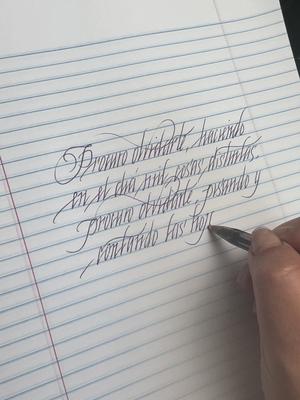 Procuro olvidarte, haciendo
en el día, mil cosas distintas.
procuro olvidarte, pisando y
contando las hoj